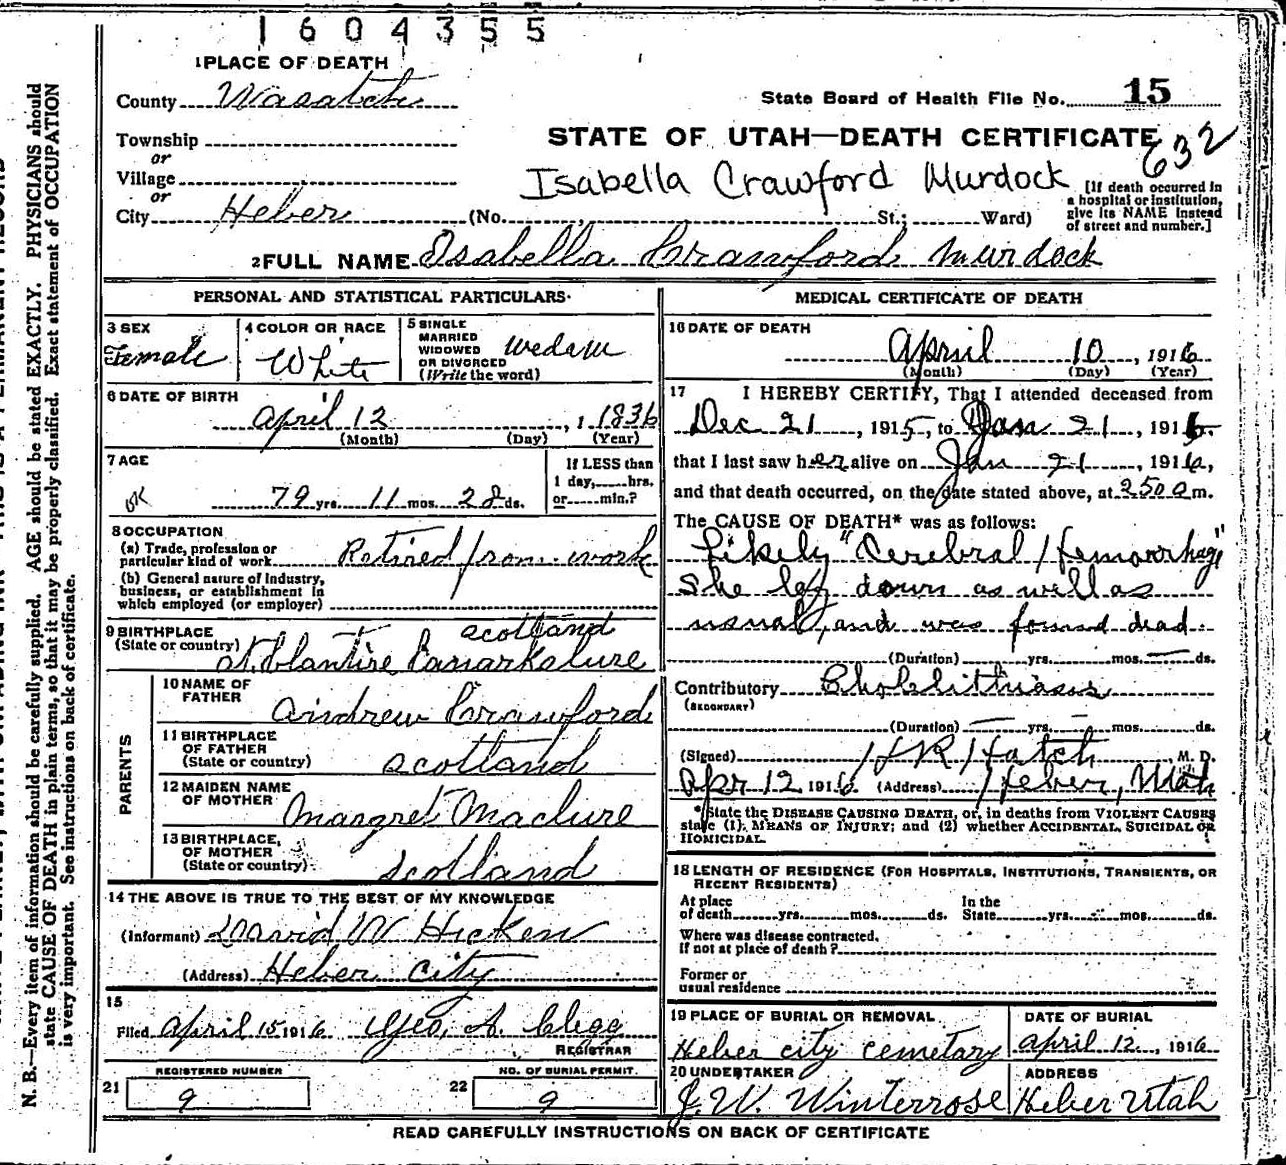 1604355
1 PLACE OF DEATH
County Wasatch
State Board of Health File No. 15
Township
STATE OF UTAH—DEATH CERTIFICATE
632
or
Village
Isabella Crawford Murdock
[If death occurred in
a hospital or institution,
give its NAME instead
of street and number.]
or
City Heber (No. St.; Ward)
2 FULL NAME Isabella Crawford Murdock
PERSONAL AND STATISTICAL PARTICULARS
3 SEX
Female
4 COLOR OR RACE
White
5 SINGLE
MARRIED
WIDOWED
OR DIVORCED
(Write the word)
6 DATE OF BIRTH
April 12, 1 1836
(Month) (Day) (Year)
7 AGE
OK
79 yrs. 11 mos. 28 ds.
If LESS than
1 day, hrs.
or min.?
8 OCCUPATION
(a) Trade, profession or
particular kind of work Retired from work
(b) General nature of Industry,
business, or establishment in
which employed (or employer)
9 BIRTHPLACE
(State or country)
Scotland
10 NAME OF
FATHER
Andrew Crawford
11 BIRTHPLACE
OF FATHER
(State or country)
Scotland
PARENTS
12 MAIDEN NAME
OF MOTHER
Margret Maclure
13 BIRTHPLACE
OF MOTHER
(State or country)
Scotland
14 THE ABOVE IS TRUE TO THE BEST OF MY KNOWLEDGE
(Informant) David W Hicken
(Address) Heber City
15
Filed April 15 1916 Geo. A. Clegg
REGISTRAR
REGISTERED NUMBER
21 9
NO. OF BURIAL PERMIT.
22 9
MEDICAL CERTIFICATE OF DEATH
16 DATE OF DEATH
April 10, 1916
(Month) (Day) (Year)
17 I HEREBY CERTIFY, That I attended deceased from
Dec 21, 1915, to Jan 21, 1916
that I last saw her alive on Jan 21, 1916,
and that death occurred, on the date stated above, at 250 a m.
The CAUSE OF DEATH* was as follows:
Likely "Cerebral Hemorrhage"
she down as well as
usual, and was found dead.
(Duration) yrs. mos. ds.
Contributory
(SECONDARY)
(Duration) yrs. mos. ds.
(Signed) H R Hatch, M. D.
Apr 12, 1916 (Address) Heber, Utah
*State the DISEASE CAUSING DEATH, or, in deaths from VIOLENT CAUSES
state (1), MEANS OF INJURY; and (2) whether ACCIDENTAL, SUICIDAL OR
HOMICIDAL.
18 LENGTH OF RESIDENCE (FOR HOSPITALS, INSTITUTIONS, TRANSIENTS, OR
RECENT RESIDENTS)
At place
of death yrs. mos. ds.
In the
State yrs. mos. ds.
Where was disease contracted,
if not at place of death?
Former or
usual residence
19 PLACE OF BURIAL OR REMOVAL
Heber City Cemetary
DATE OF BURIAL
April 12, 1916
20 UNDERTAKER
J. W. Winterrose
ADDRESS
Heber Utah
READ CAREFULLY INSTRUCTIONS ON BACK OF CERTIFICATE
N. B.—Every item of information should be carefully supplied. AGE should be stated EXACTLY. PHYSICIANS should
state CAUSE OF DEATH in plain terms, so that it may be properly classified. Exact statement of OCCUPATION
is very important. See instructions on back of certificate.